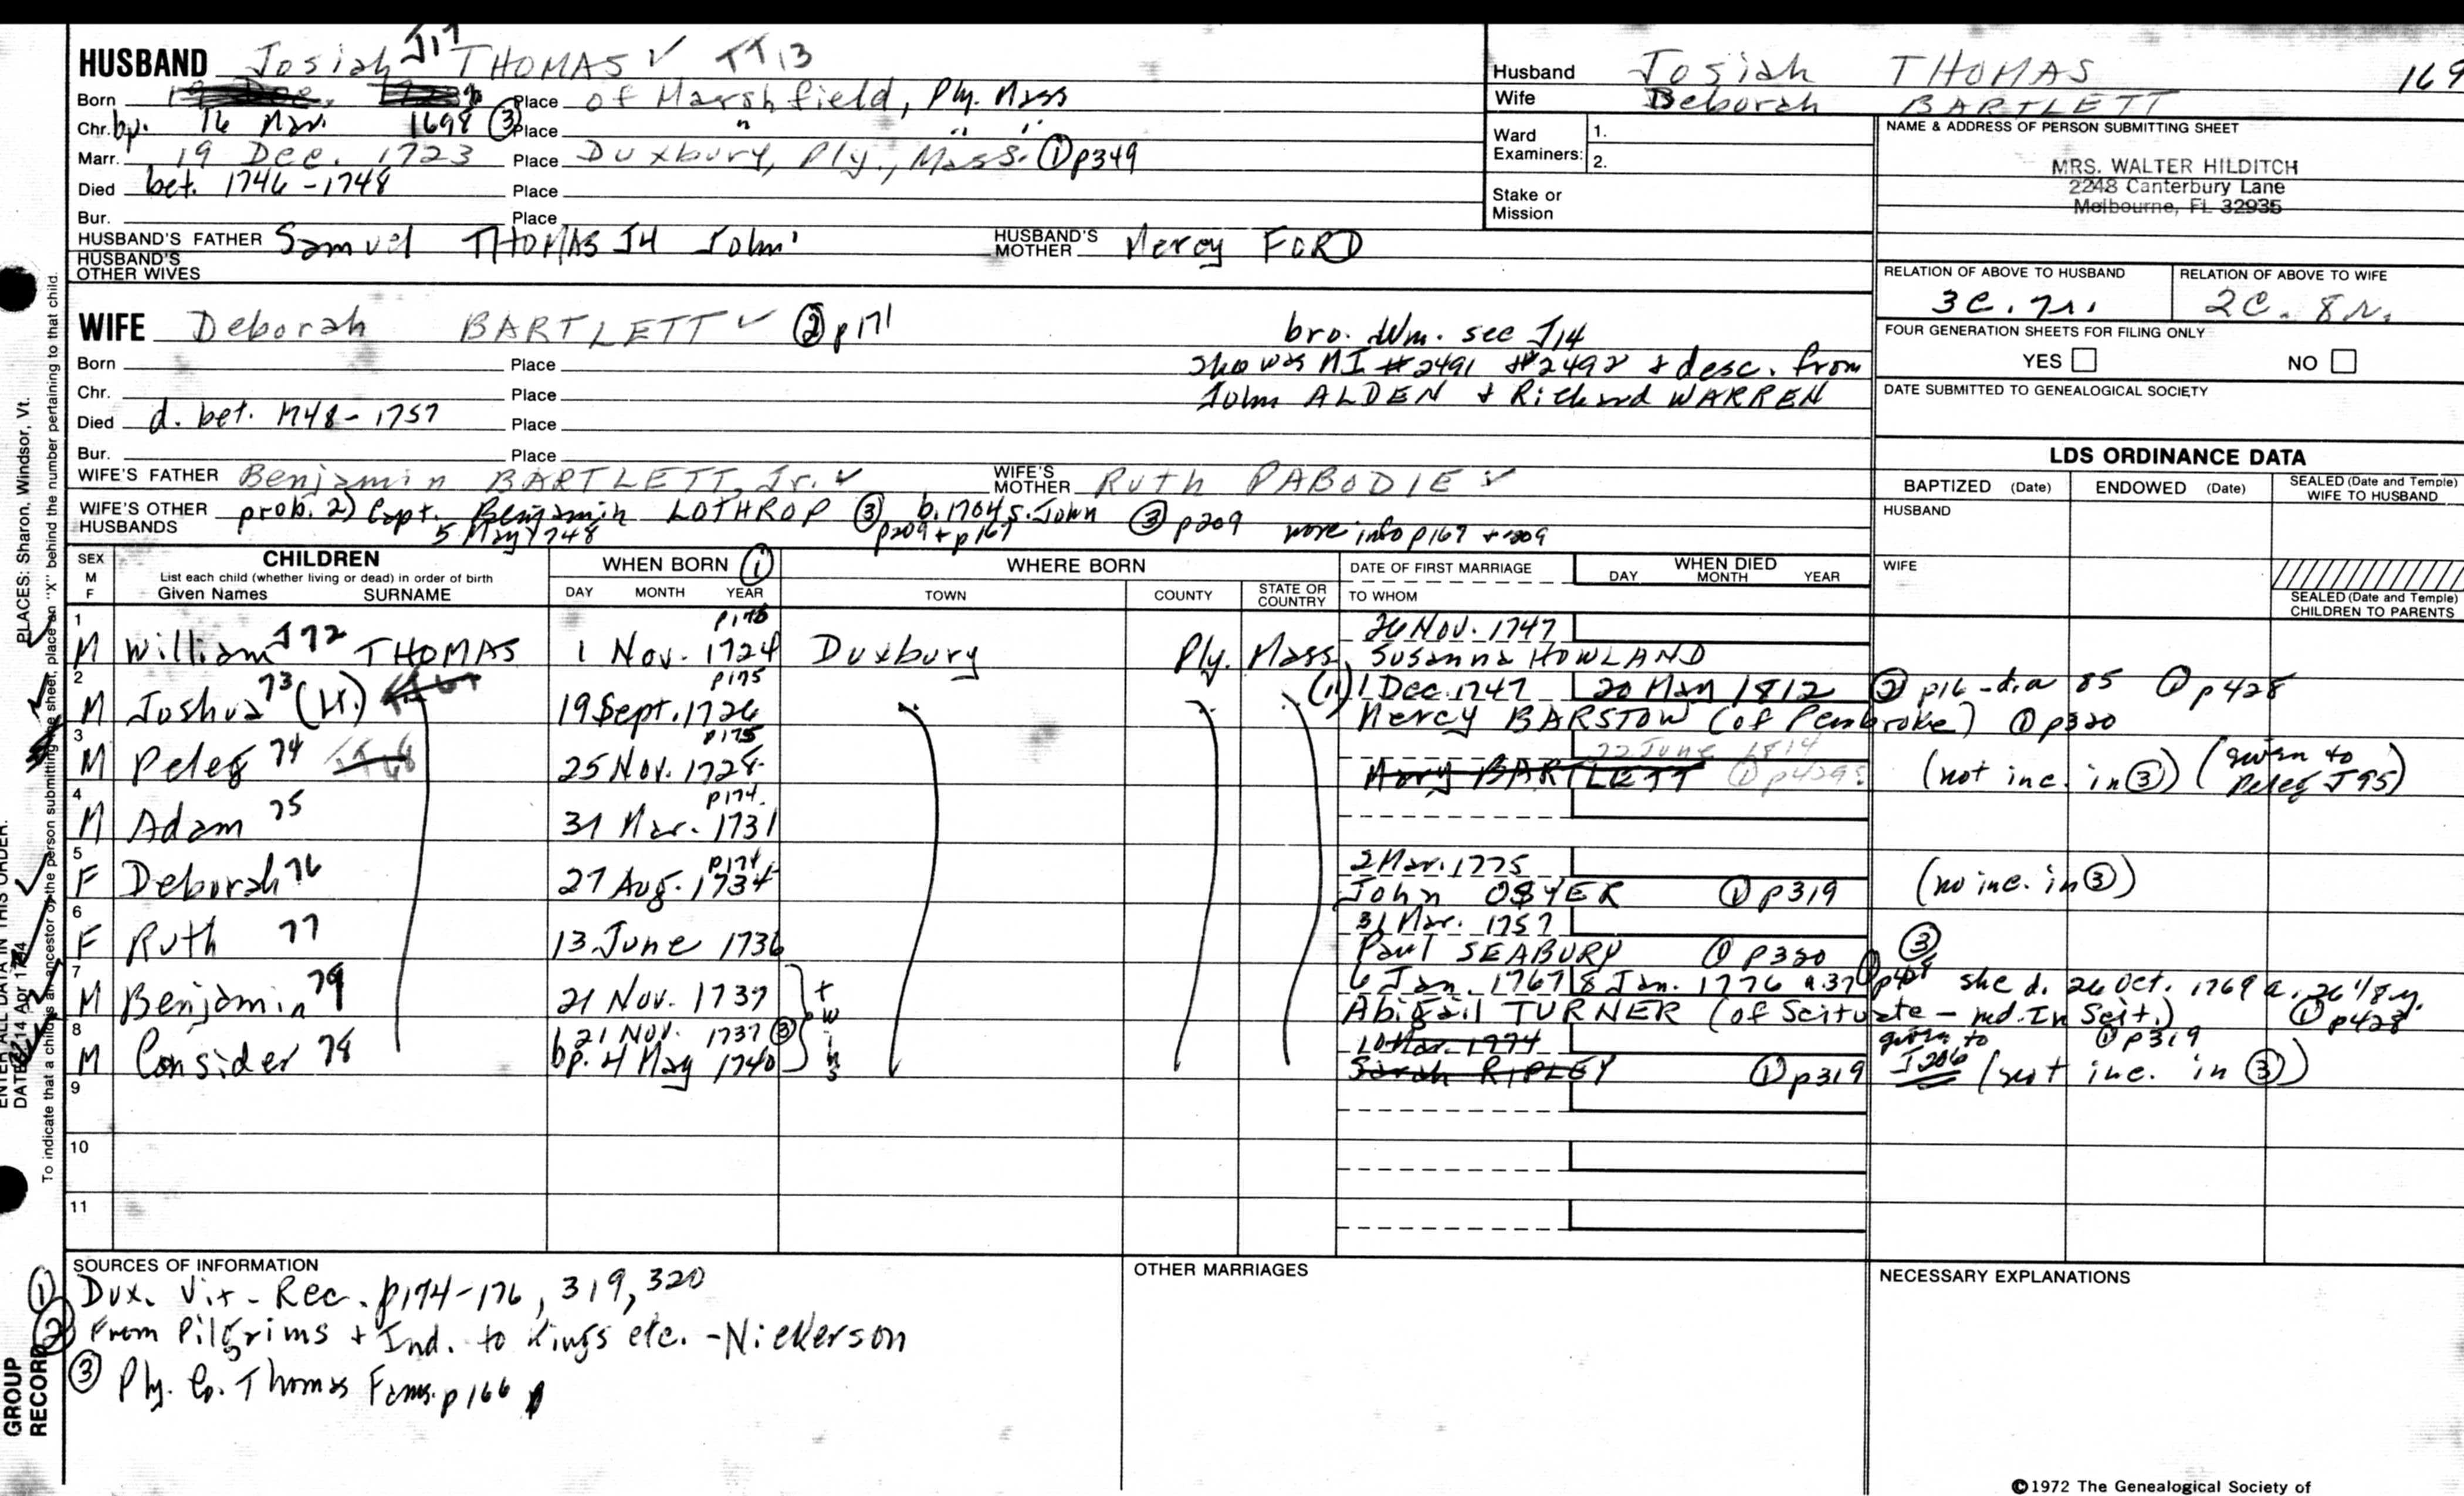 HUSBAND Josiah J17 THOMAS ✓ TT13
Born Place of Marshfield, Ply. Mass
Chr. bp. 16 Mar. 1698 ③ Place " " "
Marr. 19 Dec. 1723 Place Duxbury, Ply., Mass. ① p349
Died bet. 1746-1748 Place
Bur. Place
HUSBAND'S FATHER Samuel THOMAS J4 John' HUSBAND'S MOTHER Mercy FORD
HUSBAND'S OTHER WIVES
Husband Josiah THOMAS 169
Wife Deborah BARTLETT
Ward Examiners: 1.
2.
Stake or Mission
NAME & ADDRESS OF PERSON SUBMITTING SHEET
MRS. WALTER HILDITCH
2248 Canterbury Lane
Melbourne, FL 32935
RELATION OF ABOVE TO HUSBAND RELATION OF ABOVE TO WIFE
3C. 7r. 2C. 8r.
FOUR GENERATION SHEETS FOR FILING ONLY
YES NO
DATE SUBMITTED TO GENEALOGICAL SOCIETY
WIFE Deborah BARTLETT ✓ ② p171
bro. Wm. see J14
she was MI #2491 #2492 + desc. from
John ALDEN + Richard WARREN
Born Place
Chr. Place
Died d. bet. 1748-1757 Place
Bur. Place
WIFE'S FATHER Benjamin BARTLETT, Jr. ✓ WIFE'S MOTHER Ruth PABODIE ✓
WIFE'S OTHER HUSBANDS prob. 2) Capt. Benjamin LOTHROP ③ b. 1704 s. John ③ p209
5 May 1748 p209 + p167 more info p167 + 209
LDS ORDINANCE DATA
BAPTIZED (Date) ENDOWED (Date) SEALED (Date and Temple) WIFE TO HUSBAND
HUSBAND
WIFE
SEALED (Date and Temple) CHILDREN TO PARENTS
SEX M F
CHILDREN
List each child (whether living or dead) in order of birth
Given Names SURNAME
WHEN BORN ①
DAY MONTH YEAR
WHERE BORN
TOWN COUNTY STATE OR COUNTRY
DATE OF FIRST MARRIAGE
TO WHOM
WHEN DIED
DAY MONTH YEAR
1 p176 26 Nov. 1747
M William J72 THOMAS 1 Nov. 1724 Duxbury Ply. Mass. Susanna HOWLAND
2 p175 (1) 1 Dec. 1747 20 May 1812 ② p16 - d. a 85 ① p428
M Joshua 73 (Lt.) 19 Sept. 1726 " " " Mercy BARSTOW (of Pembroke) ① p320
3 p175 22 June 1814
M Peleg 74 25 Nov. 1728 Mary BARTLETT ① p429 (not inc. in ③) (given to Peleg J95)
4 p174
M Adam 75 31 Mar. 1731
5 p174 2 Mar. 1775
F Deborah 76 27 Aug. 1734 John OSYER ① p319 (no inc. in ③)
6 31 Mar. 1757
F Ruth 77 13 June 1736 Paul SEABURY ① p320 ③
7 6 Jan. 1767 8 Jan. 1776 a. 37 ① p428 she d. 26 Oct. 1769 a. 26 1/8 y.
M Benjamin 79 21 Nov. 1737 twins Abigail TURNER (of Scituate - md. In Scit.) ① p428
8 b 21 Nov. 1737 ③ 10 Mar. 1774 given to ① p319
M Consider 78 bp. 4 May 1740 Sarah RIPLEY ① p319 J206 (not inc. in ③)
9
10
11
SOURCES OF INFORMATION
① Dux. Vit- Rec. p174-176, 319, 320
② From Pilgrims + Ind. to Kings etc. -Nickerson
③ Ply. Co. Thomas Fams. p166
OTHER MARRIAGES
NECESSARY EXPLANATIONS
©1972 The Genealogical Society of
PLACES: Sharon, Windsor, Vt.
ENTER ALL DATA IN THIS ORDER:
DATES: 14 Apr 1794
To indicate that a child is an ancestor of the person submitting the sheet, place an "X" behind the number pertaining to that child.
GROUP
RECORD